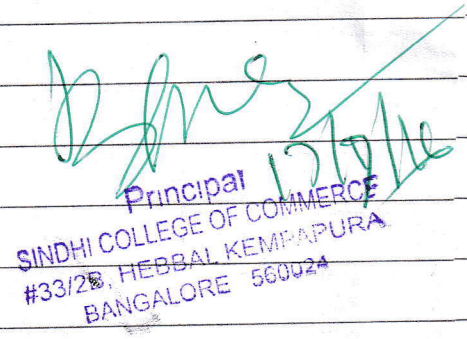 17/9/16
Principal
SINDHI COLLEGE OF COMMERCE
#33/2B, HEBBAL KEMPAPURA
BANGALORE 560024